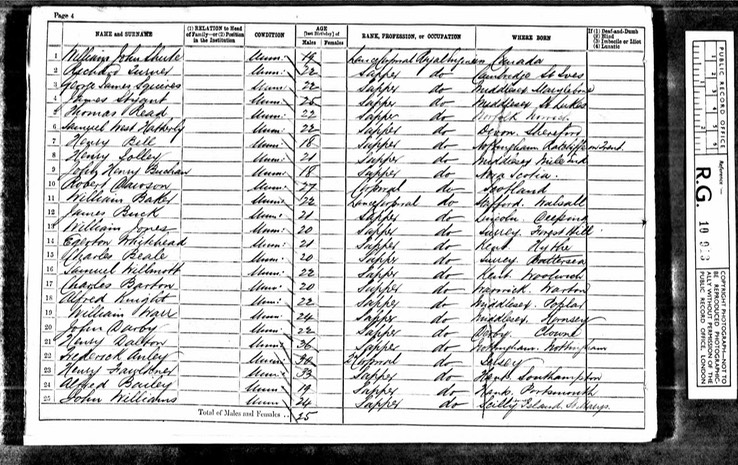 Page 4
NAME and SURNAME (1) RELATION to Head of Family—or (2) Position in the Institution CONDITION AGE [last Birthday] of Males Females RANK, PROFESSION, or OCCUPATION WHERE BORN If (1) Deaf-and-Dumb (2) Blind (3) Imbecile or Idiot (4) Lunatic
1 William John Unm: 19 Lance Corporal Royal Canada
2 Unm: 22 Sapper do Cambridge St Ives
3 George James Squires Unm: 22 Sapper do Middlesex Marylebone
4 James Unm: 25 Sapper do Middlesex St Lukes
5 Thomas Read Unm: 22 Sapper do Norfolk
6 Samuel West Unm: 22 Sapper do Devon
7 Henry Bell Unm: 18 Sapper do Nottingham
8 Henry Solley Unm: 21 Sapper do Middlesex
9 John Henry Unm: 18 Sapper do Nova Scotia
10 Robert Dawson Unm: 27 Corporal do Scotland
11 William Baker Unm: 22 Lance Corporal do Stafford. Walsall
12 James Buck Unm: 21 Sapper do Lincoln
13 William Jones Unm: 20 Sapper do Surrey Forest Hill
14 Egerton Whitehead Unm: 21 Sapper do Kent Hythe
15 Charles Beale Unm: 20 Sapper do Surrey Battersea
16 Samuel Willmott Unm: 22 Sapper do Kent Woolwich
17 Charles Barton Unm: 20 Sapper do Warwick
18 Alfred Knight Unm: 22 Sapper do Middlesex Poplar
19 William Unm: 24 Sapper do Middlesex Hornsey
20 John Darby Unm: 22 Sapper do Derby Clowne
21 Henry Dalton Unm: 36 Sapper do Nottingham Nottingham
22 Frederick Unm: 30 2d Corporal do Jersey
23 Henry Faulkner Unm: 33 Sapper do Hants Southampton
24 Alfred Bailey Unm: 19 Sapper do Hants Portsmouth
25 John Williams Unm: 24 Sapper do Scilly Island St Marys
Total of Males and Females .. 25
PUBLIC RECORD OFFICE
Reference :—
R.G.
COPYRIGHT PHOTOGRAPH—NOT TO BE REPRODUCED PHOTOGRAPHICALLY WITHOUT PERMISSION OF THE PUBLIC RECORD OFFICE, LONDON